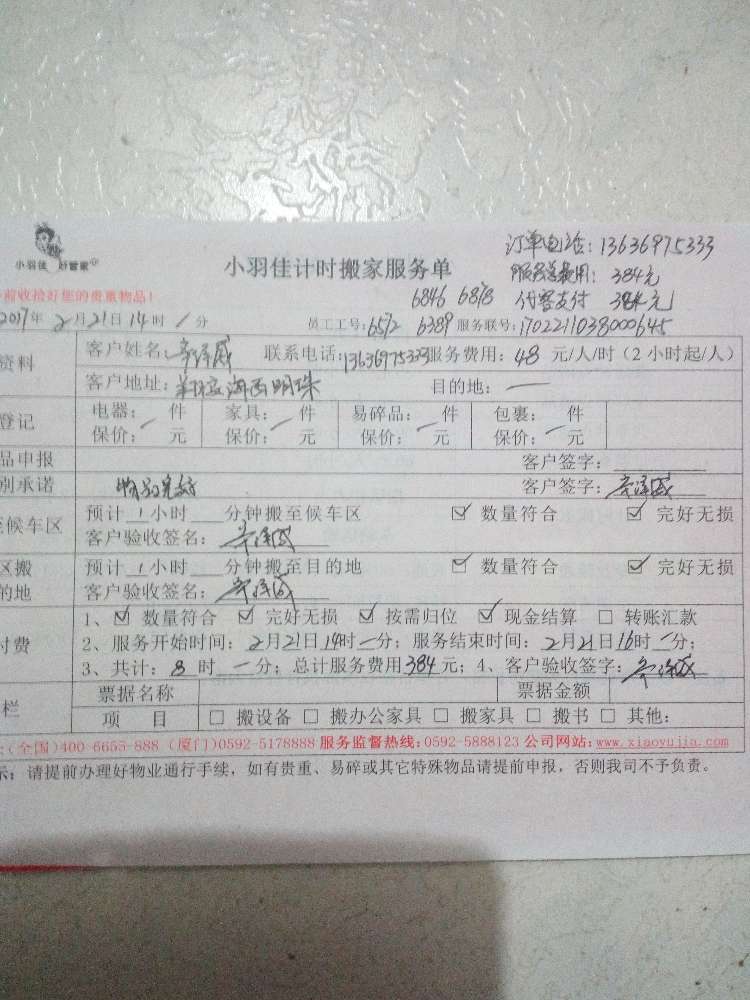 小羽佳 好管家
小羽佳计时搬家服务单
订单电话：13636975333
服务总费用：384元
代客支付 384元
前收拾好您的贵重物品！
6846 6878
2017年2月21日14时/分
员工工号：6572 6389 服务联号：170221103800645
资料
客户姓名： 联系电话：13636975333 服务费用：48 元/人/时（2小时起/人）
客户地址： 海西明珠 目的地：—
登记
电器： 件 家具： 件 易碎品： 件 包裹： 件
保价： 元 保价： 元 保价： 元 保价： 元
品申报 客户签字：
别承诺 物品完好 客户签字：
至候车区
预计1小时 分钟搬至候车区 ☑ 数量符合 ☑ 完好无损
客户验收签名：
区搬
的地
预计1小时 分钟搬至目的地 ☑ 数量符合 ☑ 完好无损
客户验收签名：
付费
1、☑ 数量符合 ☑ 完好无损 ☑ 按需归位 ☑ 现金结算 □ 转账汇款
2、服务开始时间：2月21日14时—分；服务结束时间：2月21日16时—分；
3、共计：8时—分；总计服务费用384元；4、客户验收签字：
栏
票据名称 票据金额
项 目 □ 搬设备 □ 搬办公家具 □ 搬家具 □ 搬书 □ 其他：
：（全国）400-6655-888（厦门）0592-5178888 服务监督热线：0592-5888123 公司网站：www.xiaoyujia.com
示：请提前办理好物业通行手续，如有贵重、易碎或其它特殊物品请提前申报，否则我司不予负责。